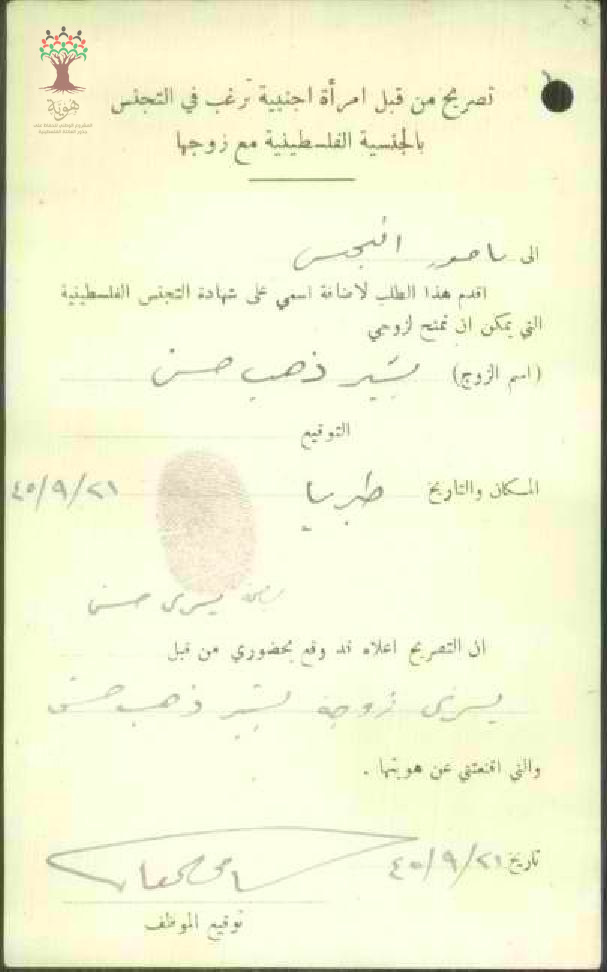 هوية
تصريح من قبل امرأة اجنبية ترغب في التجنس
بالجنسية الفلسطينية مع زوجها
الى مأمور التجنس
اقدم هذا الطلب لاضافة اسمي على شهادة التجنس الفلسطينية
التي يمكن ان تمنح لزوجي
(اسم الزوج) بشير ذهب حسن
التوقيع
المكان والتاريخ طبريا ٤٥/٩/٢١
بصمة يسرى حسن
ان التصريح اعلاه قد وقع بحضوري من قبل
يسرى زوجة بشير ذهب حسن
والتي اقنعتني عن هويتها .
تاريخ ٤٥/٩/٢١
توقيع الموظف